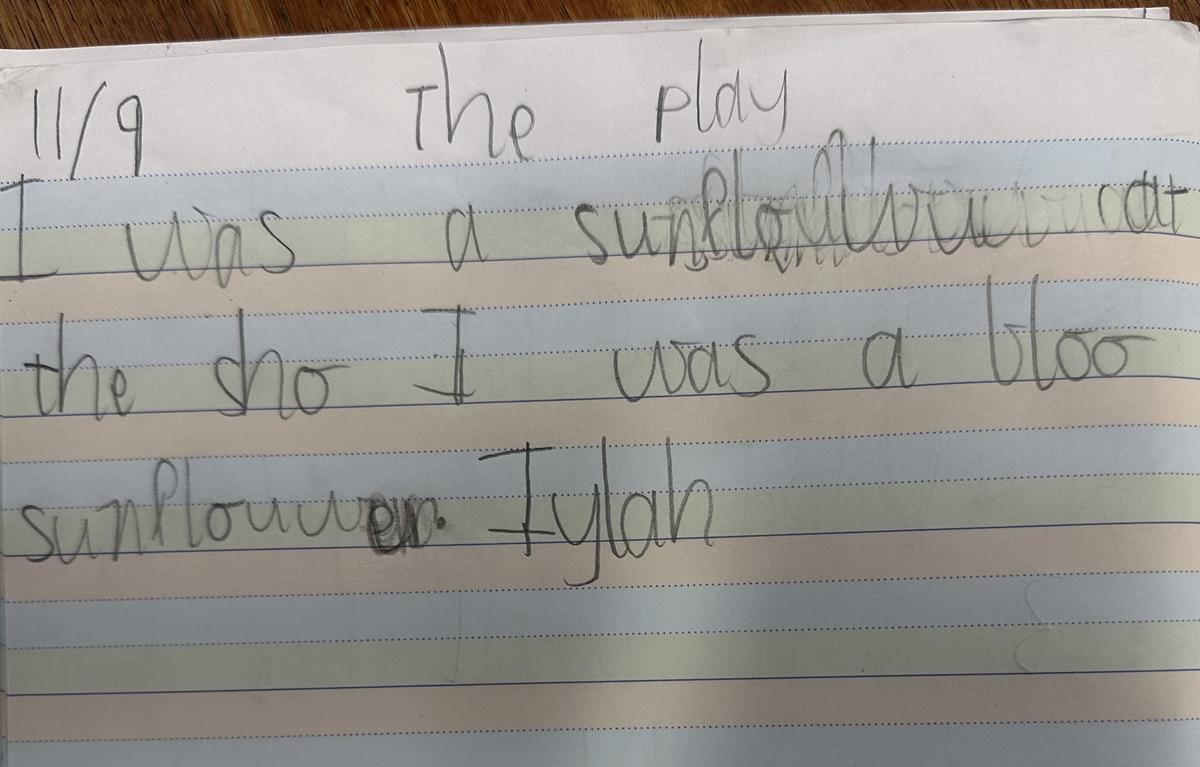 11/9 The play
I was a at
the sho I was a bloo
sunflouwer. Iylah